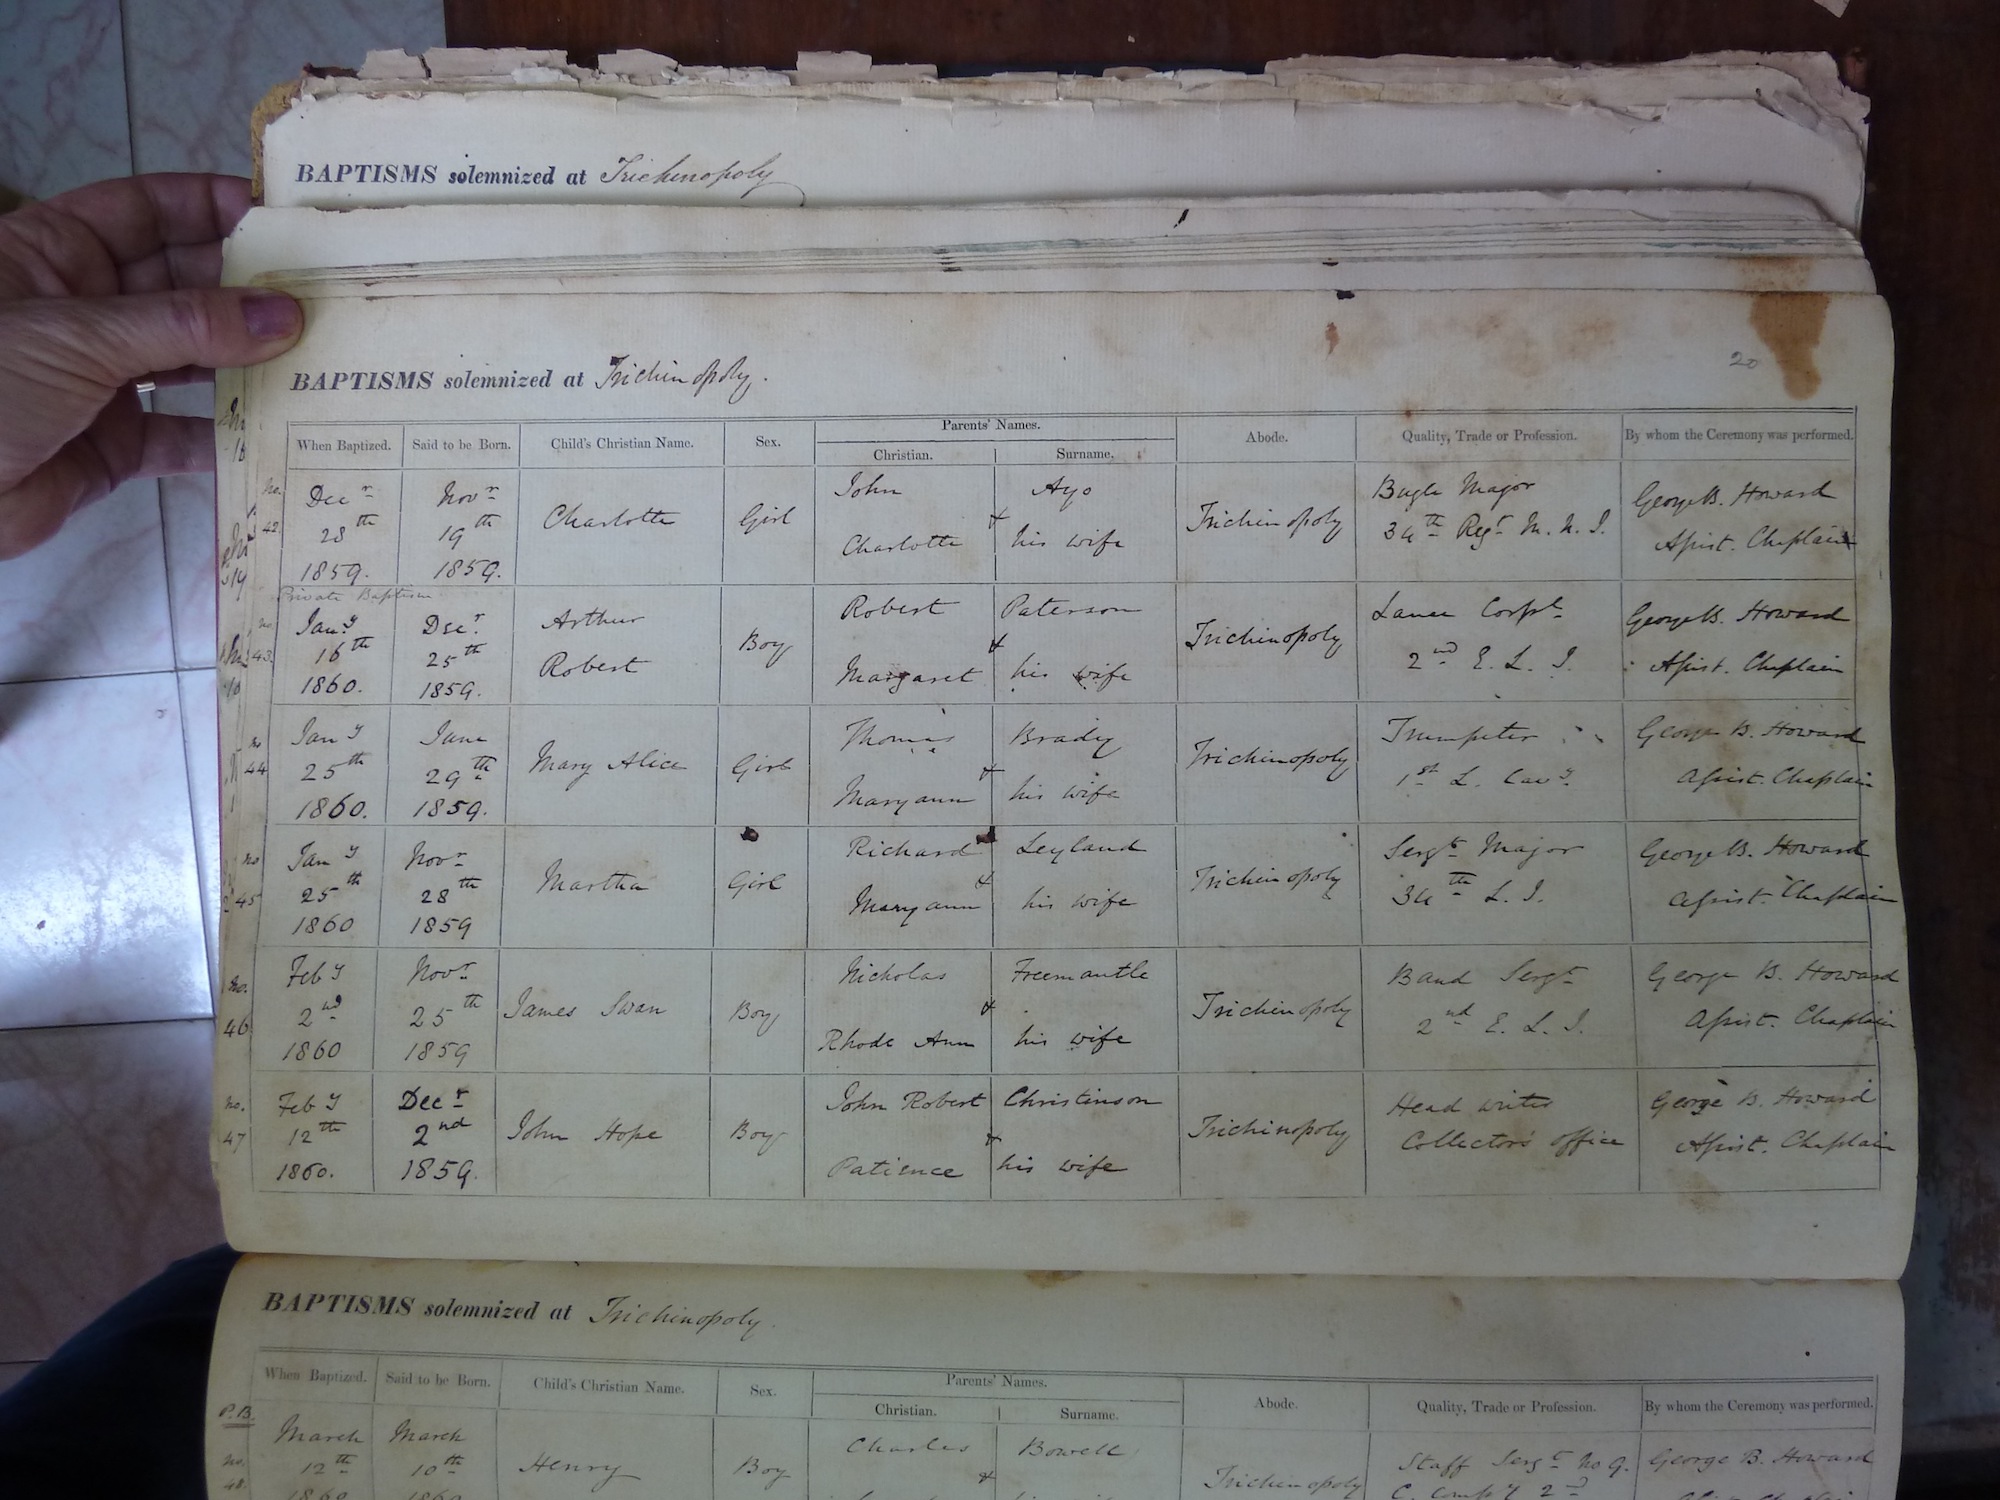 BAPTISMS solemnized at Trichinopoly
BAPTISMS solemnized at Trichinopoly.
20
When Baptized. Said to be Born. Child's Christian Name. Sex. Parents' Names. Abode. Quality, Trade or Profession. By whom the Ceremony was performed.
Christian. Surname.
No. 42 Decr 28th 1859. Novr 19th 1859. Charlotte Girl John + Charlotte Ayo his wife Trichinopoly Bugle Major 34th Regt M. N. I. George B. Howard Assist. Chaplain
Private Baptism
No 43. Jany 16th 1860. Decr 25th 1859. Arthur Robert Boy Robert + Margaret Paterson his wife Trichinopoly Lance Corpl 2nd E. L. I. George B. Howard Assist. Chaplain
No 44 Jany 25th 1860. June 29th 1859. Mary Alice Girl Thomas + Maryann Brady his wife Trichinopoly Trumpeter 1st L. Cavy George B. Howard Assist. Chaplain
No 45 Jany 25th 1860 Novr 28th 1859 Martha Girl Richard + Maryann Leyland his wife Trichinopoly Sergt Major 34th L. I. George B. Howard Assist. Chaplain
No. 46 Feby 2nd 1860 Novr 25th 1859 James Swan Boy Nicholas + Rhode Ann Freemantle his wife Trichinopoly Band Sergt 2nd E. L. I. George B. Howard Assist. Chaplain
No. 47 Feby 12th 1860. Decr 2nd 1859. John Hope Boy John Robert + Patience Christinson his wife Trichinopoly Head writer Collector's office George B. Howard Assist. Chaplain
BAPTISMS solemnized at Trichinopoly.
When Baptized. Said to be Born. Child's Christian Name. Sex. Parents' Names. Abode. Quality, Trade or Profession. By whom the Ceremony was performed.
Christian. Surname.
P.B. No. 48. March 12th 1860 March 10th 1860 Henry Boy Charles + Bowell Trichinopoly Staff Sergt No 9. C. Compy 2d George B. Howard